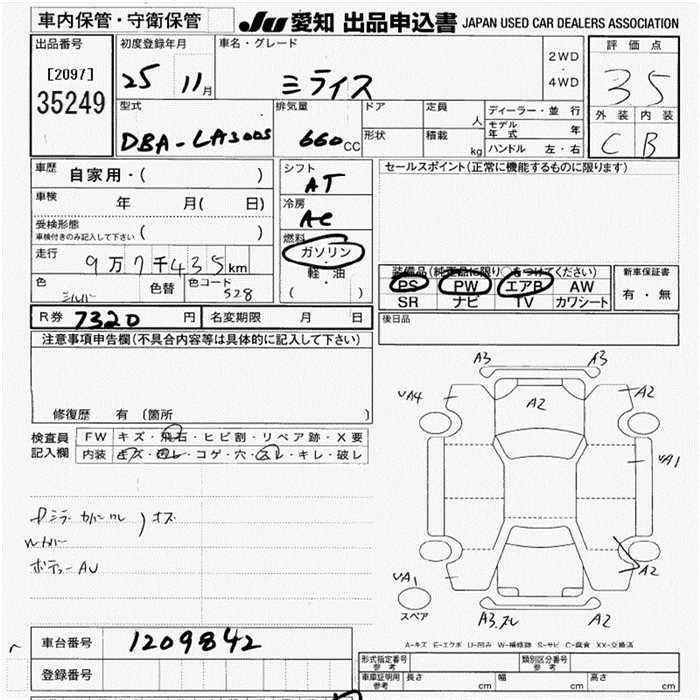 車内保管・守衛保管 JU 愛知 出品申込書 JAPAN USED CAR DEALERS ASSOCIATION
出品番号 初度登録年月 車名・グレード 2WD 評価点
[2097] 25 11月 ミライス ・ 35
35249 4WD
外装 内装
型式 排気量 ドア 定員 人 ディーラー・並行 C B
DBA-LA300S 660CC 形状 積載 kg モデル年式 年
ハンドル 左・右
車歴 自家用・( ) シフト AT セールスポイント(正常に機能するものに限ります)
車検 年 月( 日) 冷房 AC
受検形態 車検付きのみ記入して下さい ( ) 燃料
走行 9万7千435km ガソリン
色 シルバー 色替 色コード 528 軽・油
( )
装備品(純正品に限り○をつけてください) 新車保証書
PS PW エアB AW 有・無
SR ナビ TV カワシート
R券 7320円 名変期限 月 日 後日品
注意事項申告欄(不具合内容等は具体的に記入して下さい)
修復歴 有 (箇所 )
検査員記入欄 FW キズ・飛石・ヒビ割・リペア跡・X要
内装 キズ・汚レ・コゲ・穴・スレ・キレ・破レ
A3 A3
UA4 A2 A2
UA1
ボディーAU
UA1 A2
スペア
A3.ズレ A2
A-キズ E-エクボ U-凹み W-補修跡 S-サビ C-腐食 XX-交換済
車台番号 1209842
登録番号
形式指定番号 参考 類別区分番号 参考
車庫証明用 参考 長さ cm 幅 cm 高さ cm